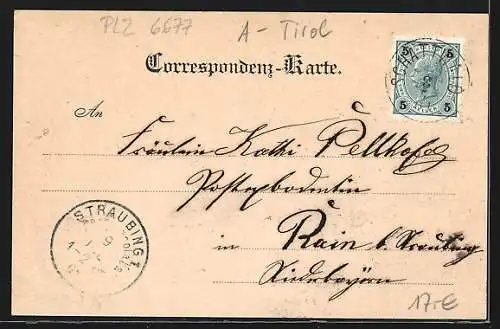 PLZ 6677
A - Tirol
Correspondenz-Karte.
5 5
5 5
An
Fräulein Kathi Pellkofer
Postexpeditorin
STRAUBING I
in Rain b. Straubing
Niederbayern
17.-E